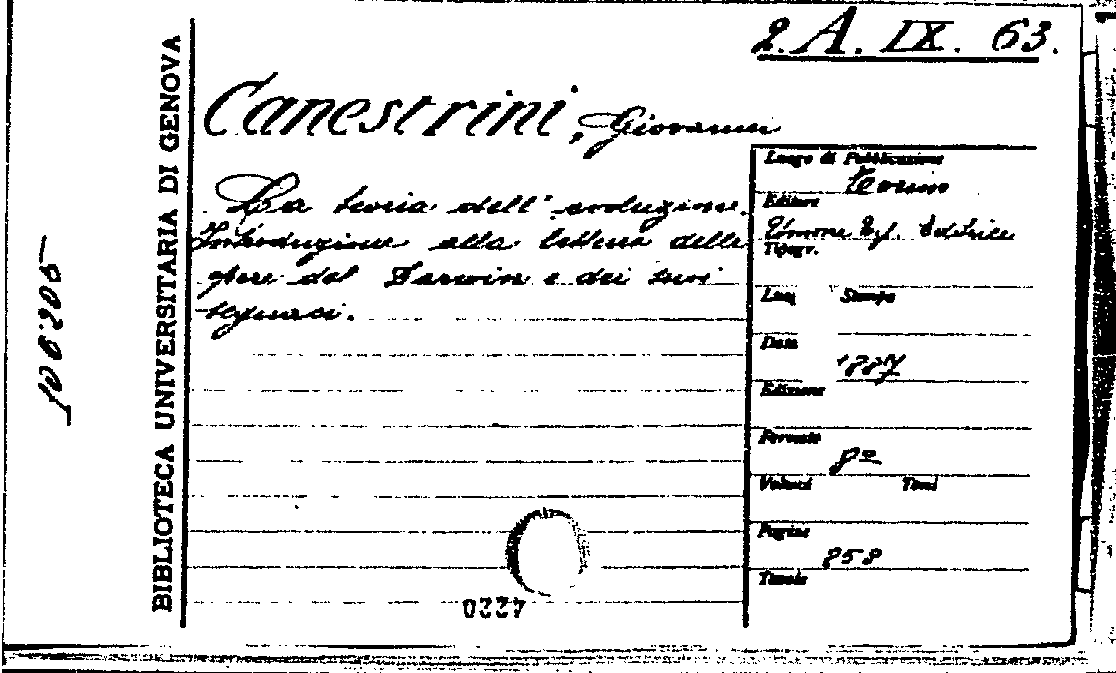 2. A. IX. 63.
Canestrini, Giovanni
La teoria dell'evoluzione.
Introduzione alla lettura delle
opere del Darwin e dei suoi
seguaci.
Luogo di Pubblicazione
Torino
Editore
Unione Tip. Editrice
Tipogr.
Luog Stampa
Data
1887
Edizione
Formato
8º
Volumi Tomi
Pagine
258
Tavole
BIBLIOTECA UNIVERSITARIA DI GENOVA
106205
4220